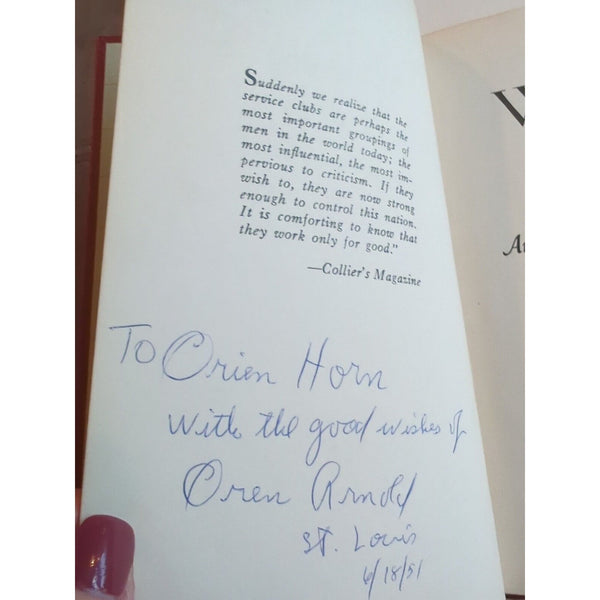 Suddenly we realize that the
service clubs are perhaps the
most important groupings of
men in the world today; the
most influential, the most im-
pervious to criticism. If they
wish to, they are now strong
enough to control this nation.
It is comforting to know that
they work only for good."
—Collier's Magazine
To Orien Horn
with the good wishes of
Oren Arnold
St. Louis
6/18/51
W